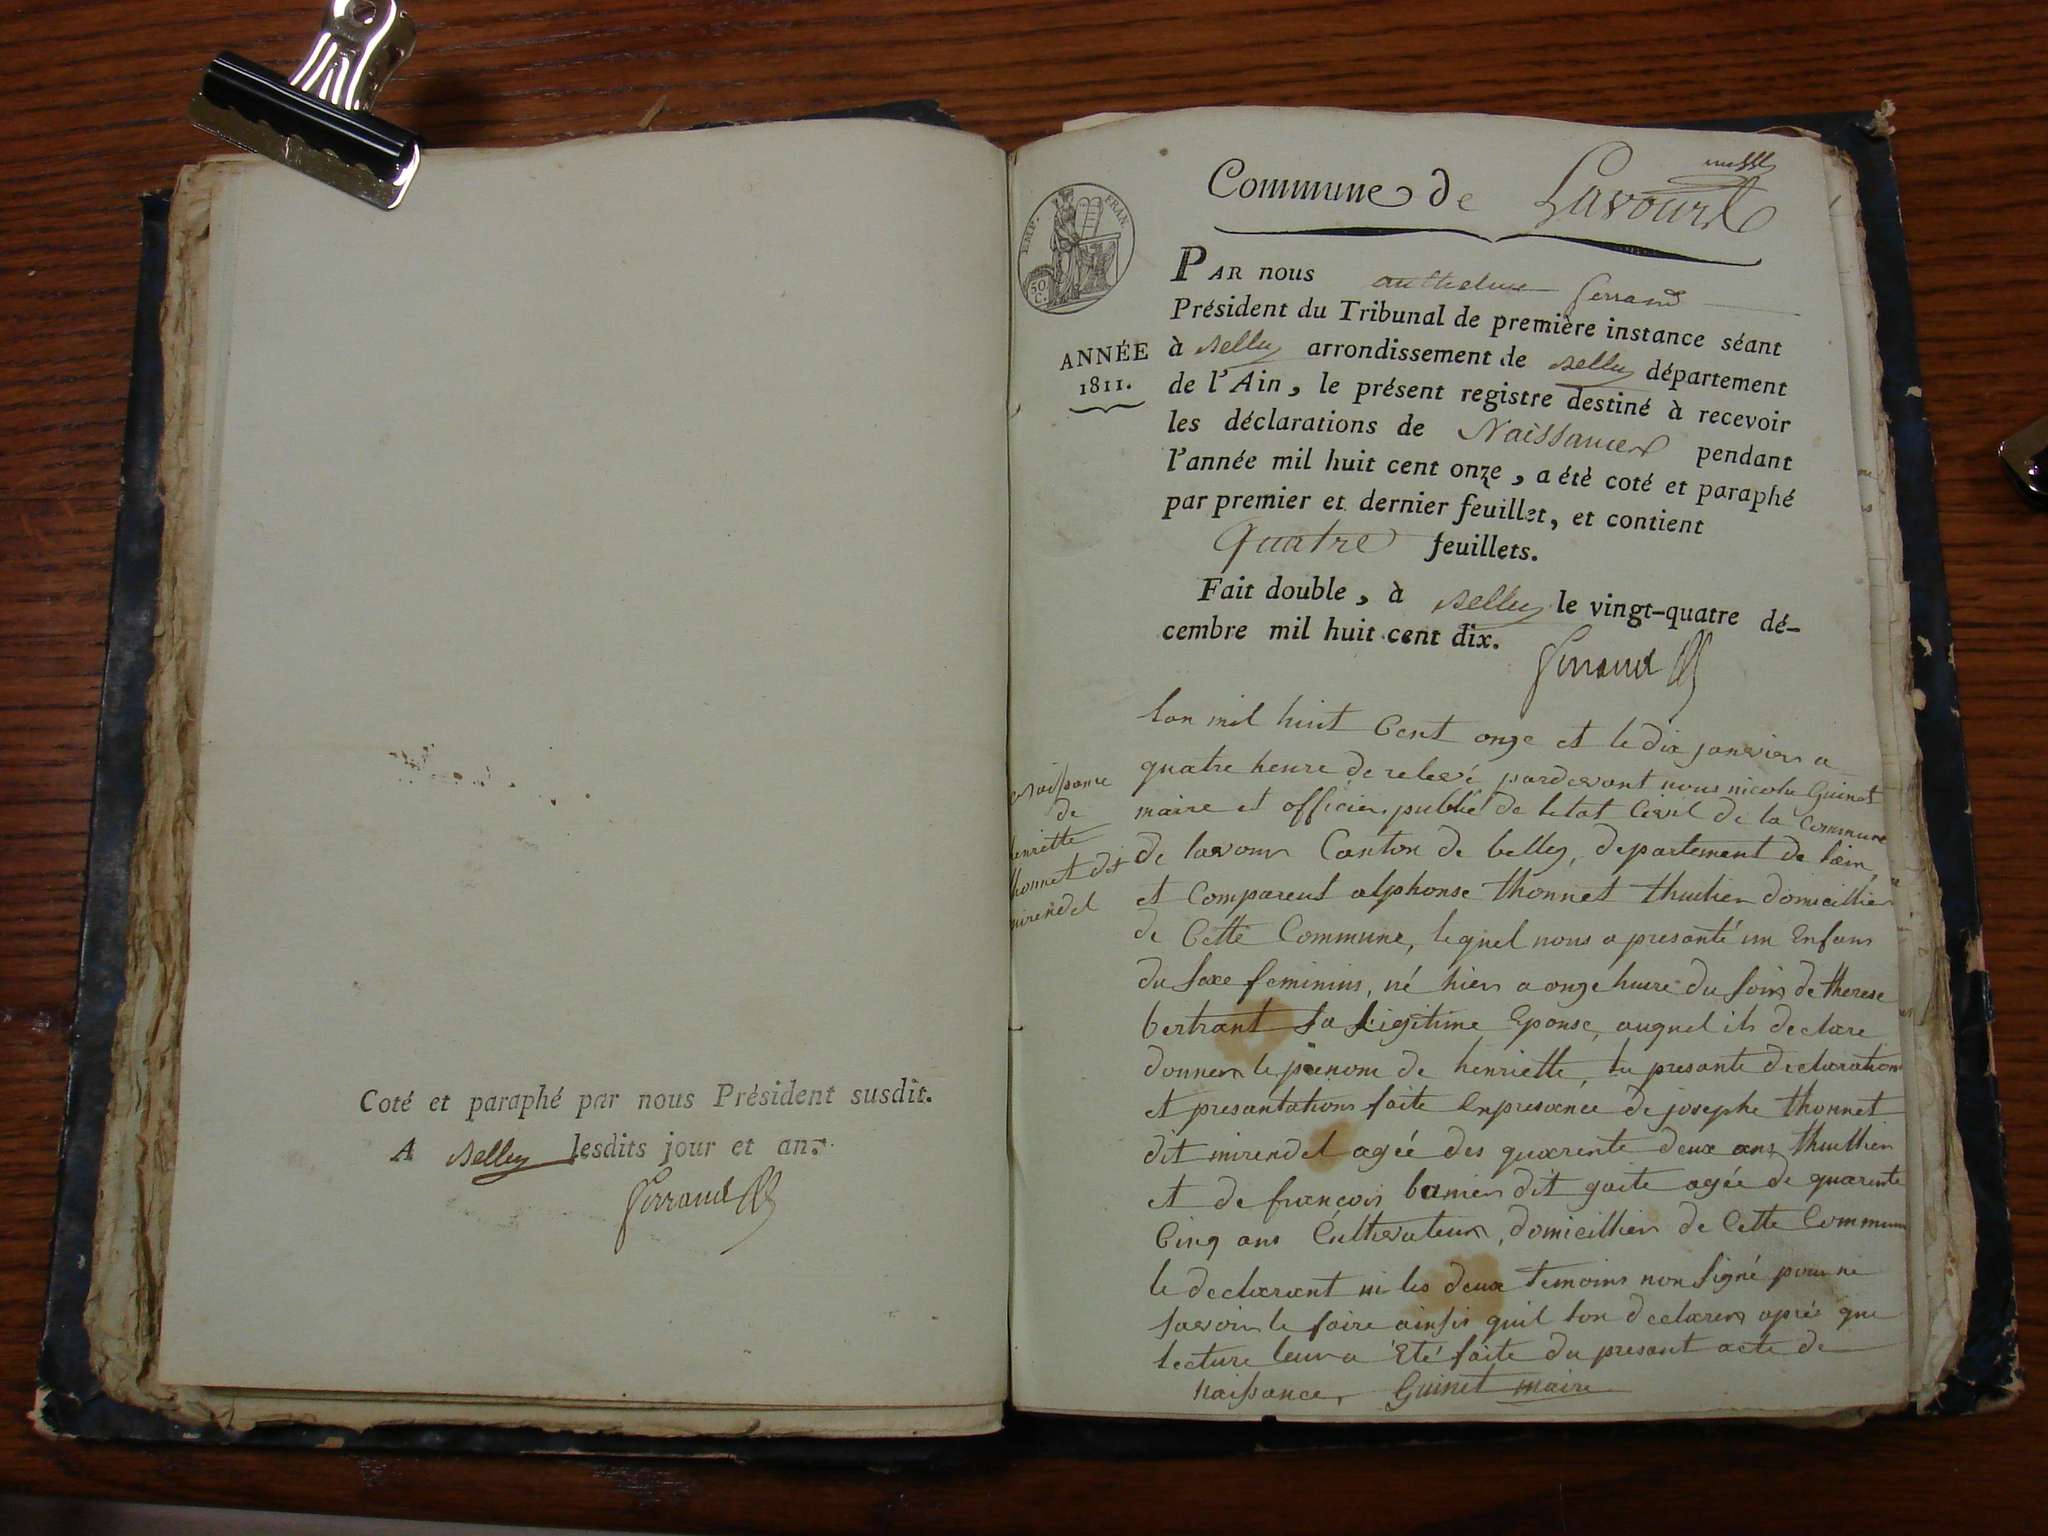 Coté et paraphé par nous Président susdit.
A Belley lesdits jour et an.
Ferrand
Commune de Lavours
EMP. FRAN.
50 C.
ANNÉE
1811.
PAR nous anthelme ferrand
Président du Tribunal de première instance séant
à Belley arrondissement de Belley département
de l'Ain, le présent registre destiné à recevoir
les déclarations de Naissances pendant
l'année mil huit cent onze, a étè coté et paraphé
par premier et dernier feuillet, et contient
quatre feuillets.
Fait double, à Belley le vingt-quatre dé-
cembre mil huit cent dix.
Ferrand
Naissance
de
henriette
thonnet dit
mirendel
lan mil huit Cent onze et le dix janvier a
quatre heure de relevé pardevant nous nicolas Guinet
maire et officier public de letat Civil de la Commune
de lavour Canton de belley, departement de lain,
et Comparent alphonse thonnet thuilier domicillier
de Cette Commune, lequel nous a presanté un Enfans
du Saxe feminins, né hier a onze heure du soir de therese
bertrant Sa Ligitime Epouse, auquel ils declare
donner le prenom de henriette, la presante declaration
et presantations faite En presance de josephe thonnet
dit mirendel agée des quarente deux ans thuillier
et de francois banier dit gaite agée de quarente
Cinq ans Cultivateur, domicillier de Cette Commune
le declarant ni les deux temoins non Signé pour ne
Savoir le faire ainsis quil lon declarer aprés que
lecture leur a Eté faite du presant acte de
naissance, Guinet maire